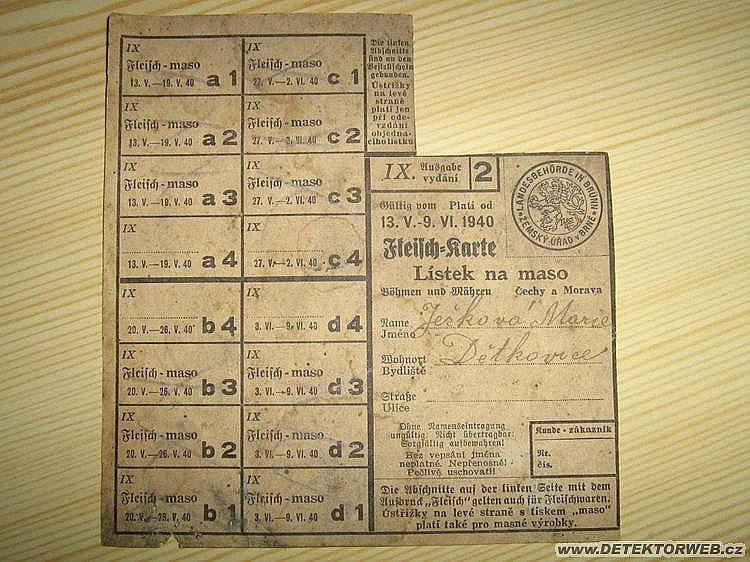 IX
Fleisch - maso
13. V.—19. V. 40 a 1
IX
Fleisch - maso
27. V.—2. VI. 40 c 1
Die linken
Abschnitte
sind an den
Bestellschein
gebunden.
Ústřižky
na levé
straně
platí jen
při ode-
vzdání
objedna-
cího lístku
IX
Fleisch - maso
13. V.—19. V. 40 a 2
IX
Fleisch - maso
27. V.—2. VI. 40 c 2
IX
Fleisch - maso
13. V.—19. V. 40 a 3
IX
Fleisch - maso
27. V.—2. VI. 40 c 3
IX
13. V.—19. V. 40 a 4
IX
27. V.—2. VI. 40 c 4
IX
20. V.—26. V. 40 b 4
IX
3. VI.—9. VI. 40 d 4
IX
Fleisch - maso
20. V.—26. V. 40 b 3
IX
Fleisch - maso
3. VI.—9. VI. 40 d 3
IX
Fleisch - maso
20. V.—26. V. 40 b 2
IX
Fleisch - maso
3. VI.—9. VI. 40 d 2
IX
Fleisch - maso
20. V.—26. V. 40 b 1
IX
Fleisch - maso
3. VI.—9. VI. 40 d 1
IX. Ausgabe
vydání 2
LANDESBEHÖRDE IN BRÜNN
ZEMSKÝ ÚŘAD V BRNĚ
Gültig vom Platí od
13. V.-9. VI. 1940
Fleisch-Karte
Lístek na maso
Böhmen und Mähren Čechy a Morava
Name
Jméno Ješková Marie
Wohnort
Bydliště Dětkovice
Straße
Ulice
Ohne Namenseintragung
ungültig. Nicht übertragbar.
Sorgfältig aufbewahren!
Bez vepsání jména
neplatné. Nepřenosné!
Pečlivě uschovati!
Kunde - zákazník
Nr.
čís.
Die Abschnitte auf der linken Seite mit dem
Aufdruck „Fleisch" gelten auch für Fleischwaren.
Ústřižky na levé straně s tiskem „maso"
platí také pro masné výrobky.
www.DETEKTORWEB.cz